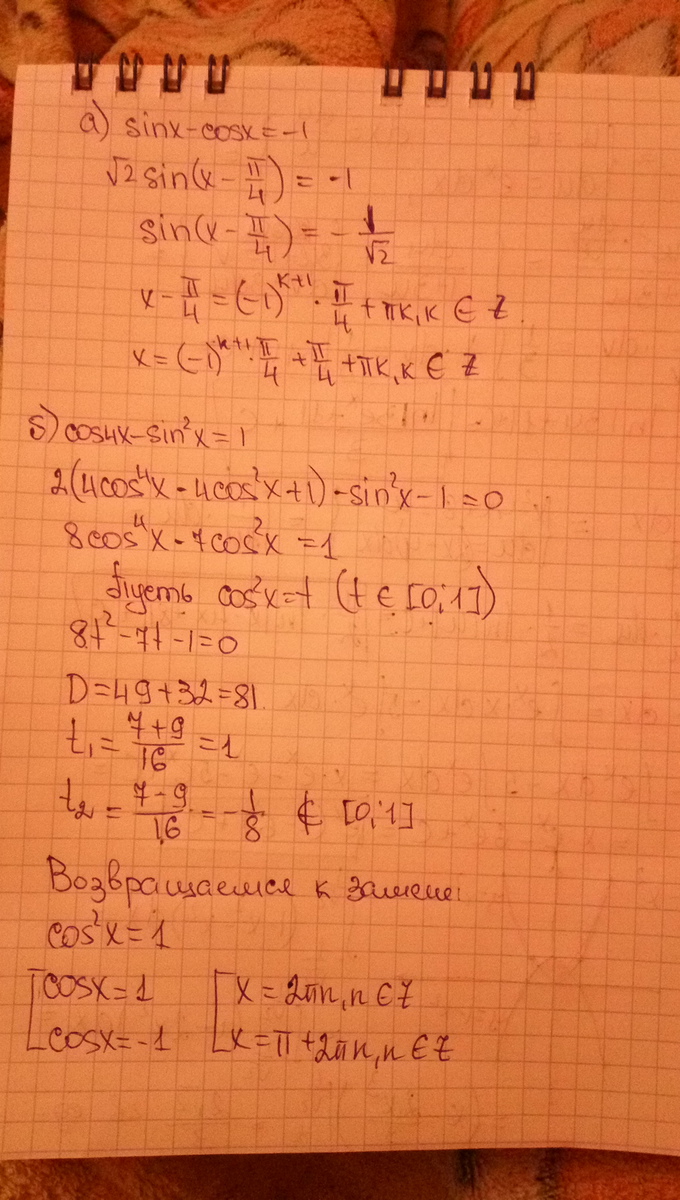 а) sinx-cosx=-1
√2 sin(x - π/4) = -1
sin(x - π/4) = - 1/√2
x - π/4 = (-1)^(k+1) · π/4 + πk, k ∈ Z.
x = (-1)^(k+1) · π/4 + π/4 + πk, k ∈ Z
б) cos4x-sin²x=1
2(4cos⁴x - 4cos²x+1) - sin²x - 1 = 0
8cos⁴x - 7cos²x = 1
Пусть cos²x=t (t ∈ [0;1])
8t² - 7t - 1 = 0
D = 49+32=81
t₁ = (7+9)/16 = 1
t₂ = (7-9)/16 = - 1/8 ∉ [0;1]
Возвращаемся к замене:
cos²x = 1
[cosx=1 [x = 2πn, n ∈ Z
[cosx=-1 [x = π + 2πn, n ∈ Z